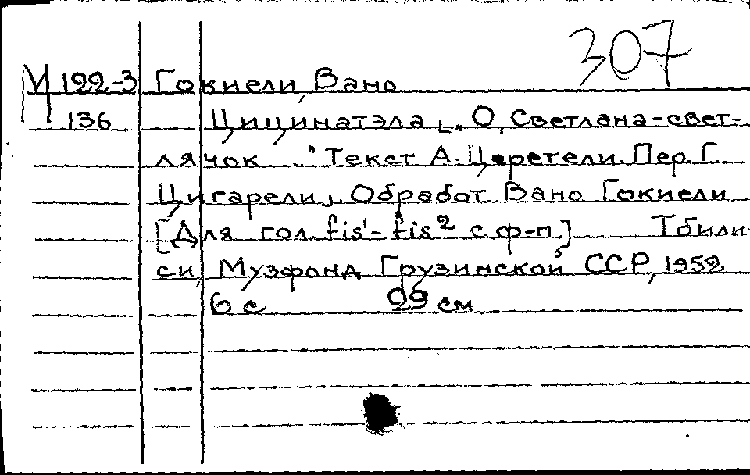 307
М 122-3 Гокиели, Вано
136 Цицинатэла „О, Светлана-свет-
лячок..." Текст А. Церетели. Пер. Г.
Цигарели, Обработ. Вано Гокиели
[Для гол. fis¹-fis² с ф-п.] Тбили
си, Музфонд Грузинской ССР, 1959
6 с 29 см